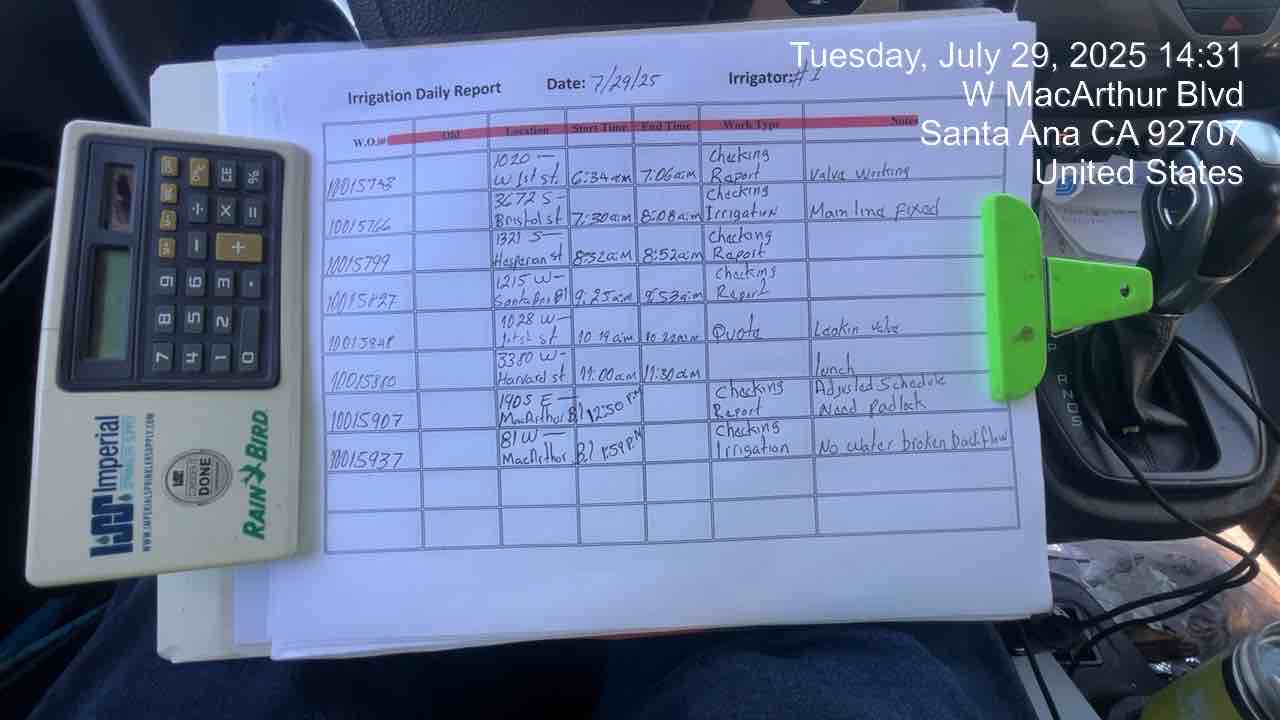 Tuesday, July 29, 2025 14:31
W MacArthur Blvd
Santa Ana CA 92707
United States
Irrigation Daily Report Date: 7/29/25 Irrigator: #1
W.O.# Old Location Start Time End Time Work Type Notes
10015743 1020 – W 1st st. 6:34am 7:06am Checking Report Valve working
10015766 3672 S – Bristol st 7:30am 8:08am Checking Irrigation Main line fixed
10015799 1321 S – Hesperian st 8:32am 8:52am Checking Report
10015827 1215 W – Santa Ana Bl 9:25am 9:53am Checking Report
10015848 1028 W – 1st st 10:19am 10:22am Quote Leakin valve
3380 W – Harvard st 11:00am 11:30am lunch
10015907 1905 E – MacArthur Bl 12:50 PM Checking Report Adjusted Schedule Need padlock
10015937 81 W – MacArthor Bl 1:59 PM Checking Irrigation No water broken backflow
% CE
÷ X =
− +
9 6 3 .
8 5 2
7 4 1 0
Imperial
SPRINKLER SUPPLY
WWW.IMPERIALSPRINKLERSUPPLY.COM
DONE
RAIN BIRD
P
R
N
D
S